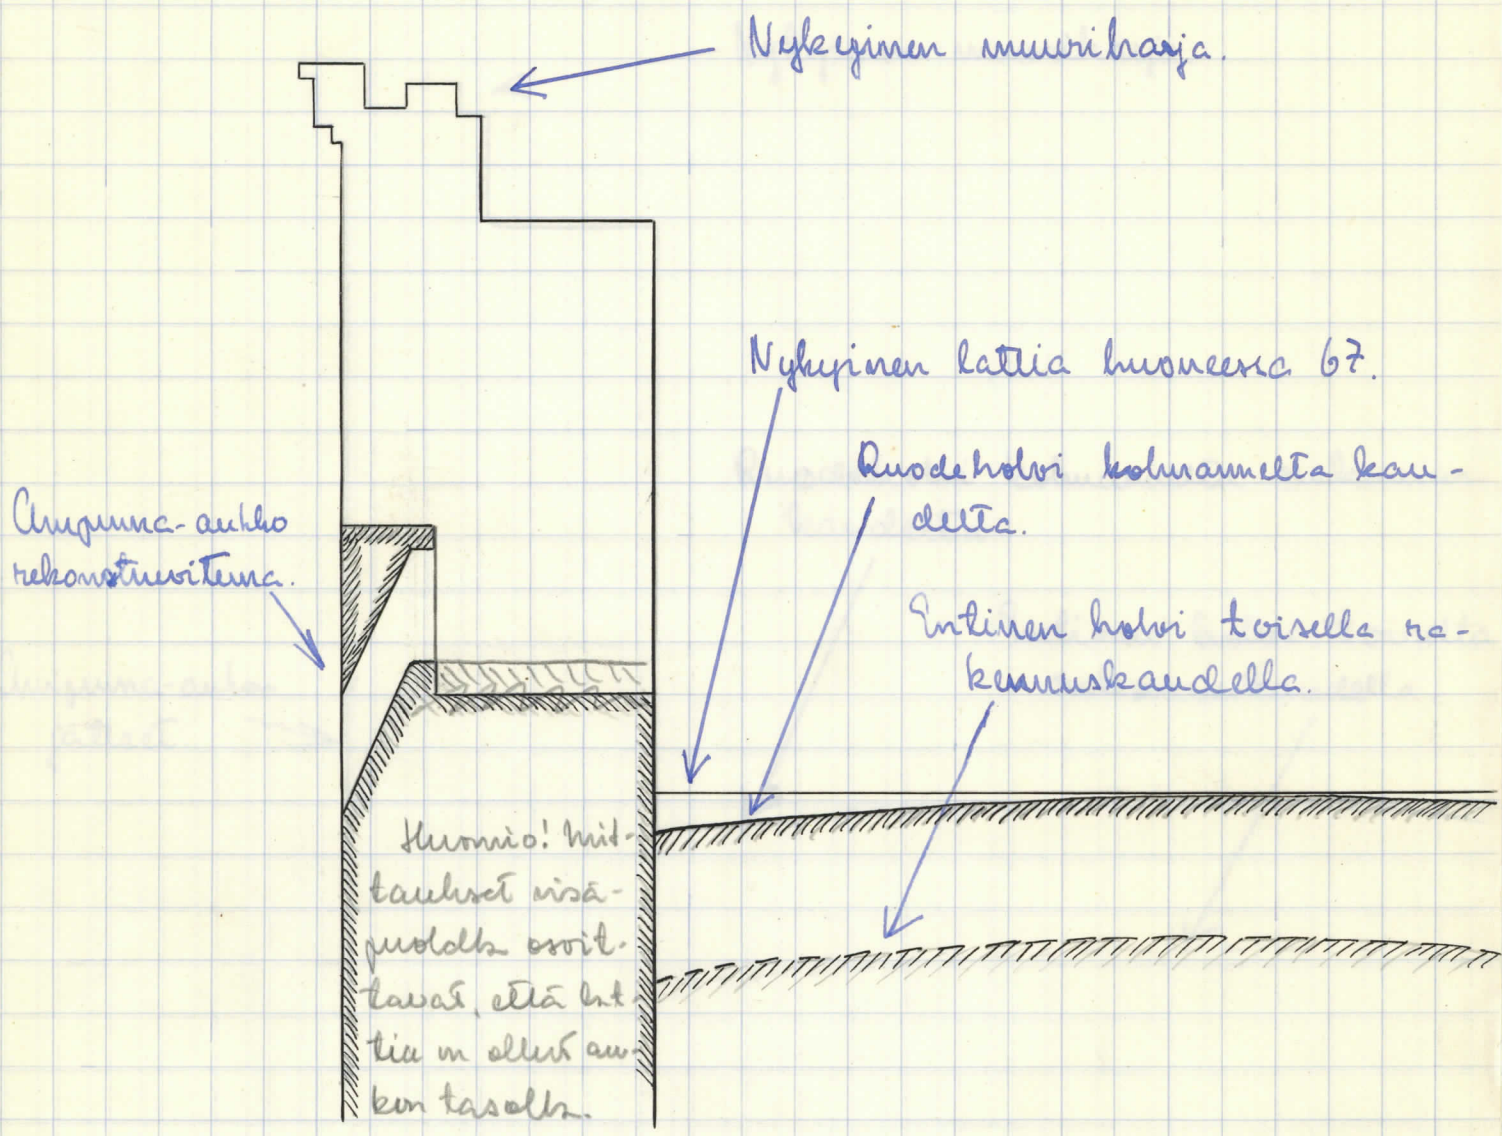 Nykyinen muuriharja.
Nykyinen lattia huoneessa 67.
Ruodeholvi kolmannelta kau-
delta.
Ampuma-aukko
rekonstruoituna.
Entinen holvi toisella ra-
kennuskaudella.
Huomio! Mit-
taukset sisä-
puolella osoit-
tavat, että lat-
tia on ollut au-
kon tasolla.